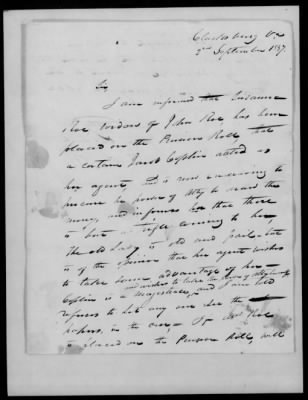 Clarksburg Va
2nd September 1837.
Sir
I am informed that Susanna
Roe widow of John Roe has been
placed on the Pension Roll that
a certain Jacob Coplin acted as
her agent, and is now endeavoring to
procure her power of Atty to draw the
money, and informs her that there
is but a trifle coming to her,
the old Lady is old and frail she
is of the opinion that her agent wishes
to take some advantage of her
and wishes to take the
Coplin is a Magistrate, and I am told
refuses to let any one see the
papers, in the case, If Mrs Roe
is placed on the Pension Roll, will